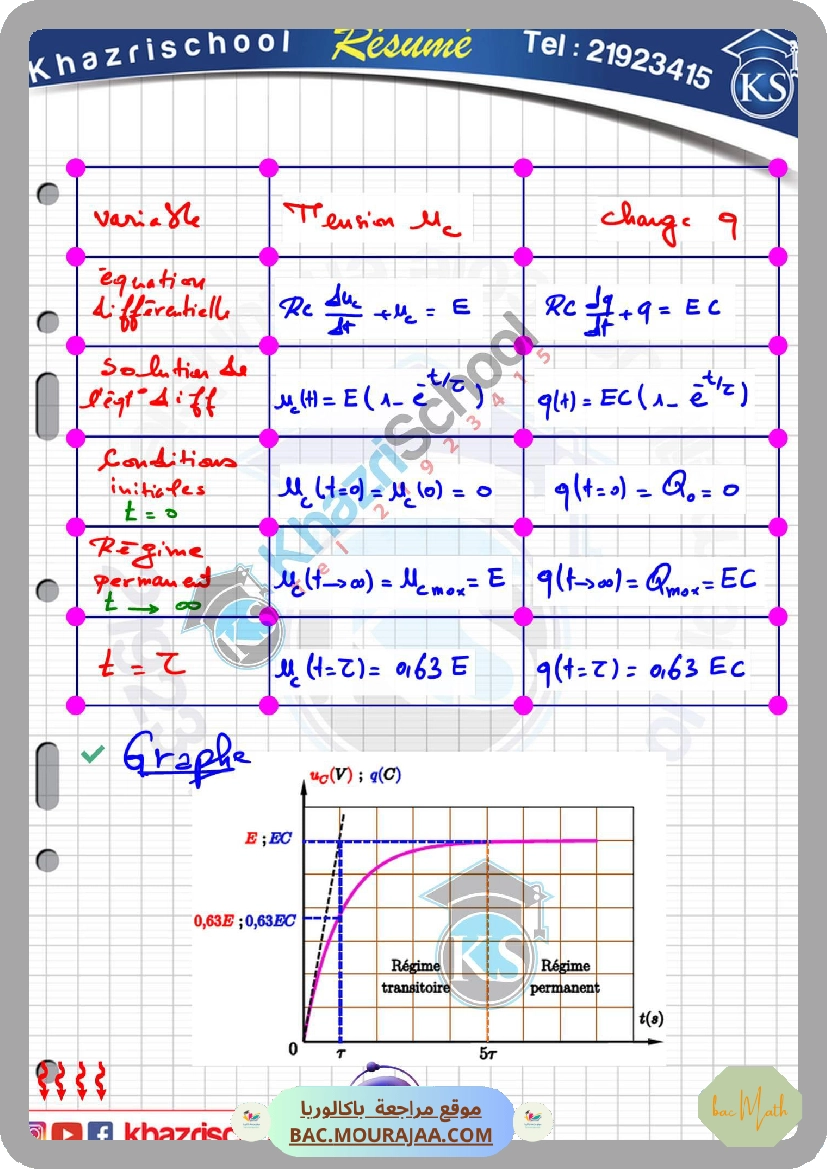 Khazrischool
Résumé
Tel : 21923415
KS
variable
Tension uc
charge q
équation
différentielle
RC duc/dt + uc = E
RC dq/dt + q = EC
Solution de
l'éqt° diff
uc(t) = E(1 - e^-t/τ)
q(t) = EC(1 - e^-t/τ)
Conditions
initiales
t = 0
uc(t=0) = uc(0) = 0
q(t=0) = Q0 = 0
Régime
permanent
t → ∞
uc(t→∞) = ucmax = E
q(t→∞) = Qmax = EC
t = τ
uc(t=τ) = 0,63 E
q(t=τ) = 0,63 EC
KhazriSchool
Tel 21923415
✓ Graphe
uC(V) ; q(C)
E ; EC
0,63E ; 0,63EC
KS
Régime
transitoire
Régime
permanent
t(s)
0
τ
5τ
khazrisc
موقع مراجعة باكالوريا
BAC.MOURAJAA.COM
bac Math